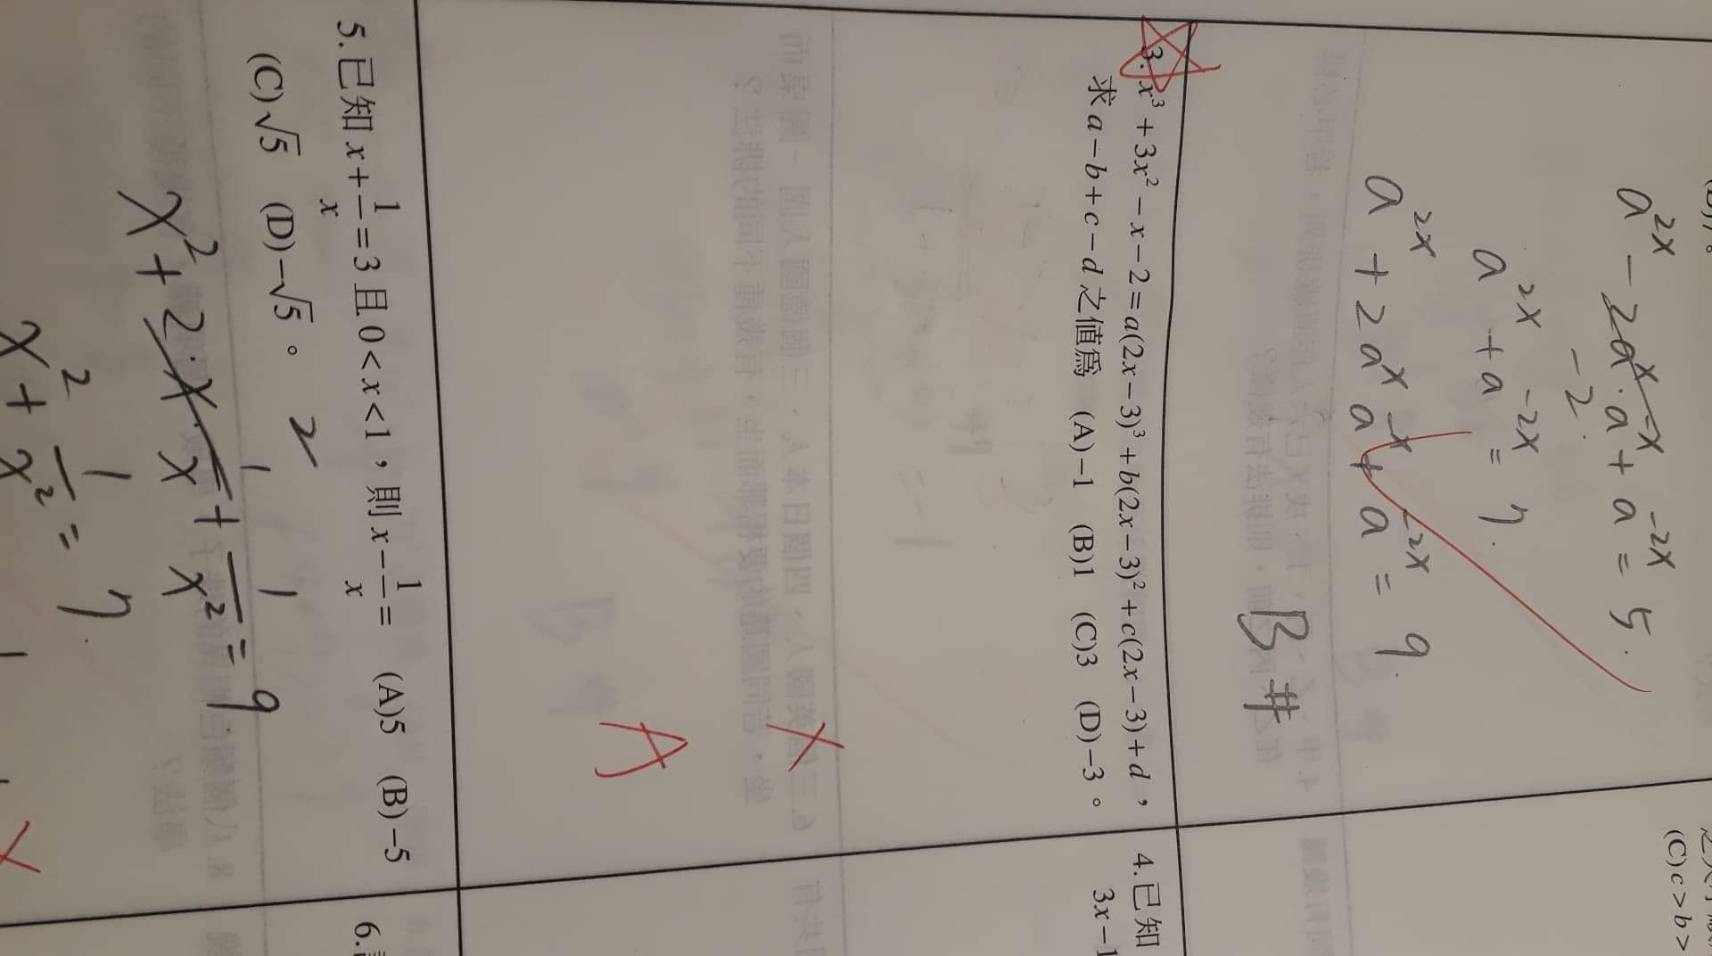 a^{2x} - 2a^x · a^{-x} + a^{-2x} = 5.
-2.
a^{2x} + a^{-2x} = 7.
a^{2x} + 2a^x a^{-x} + a^{-2x} = 9.
B #
(C) c > b >
3. x³ + 3x² − x − 2 = a(2x − 3)³ + b(2x − 3)² + c(2x − 3) + d，
求 a − b + c − d 之值為 (A) −1 (B) 1 (C) 3 (D) −3。
A
4. 已知
3x − 1
5. 已知 x + \frac{1}{x} = 3 且 0 < x < 1，則 x − \frac{1}{x} = (A) 5 (B) −5
(C) √5 (D) −√5。
x² + 2·x·\frac{1}{x} + \frac{1}{x²} = 9
x² + \frac{1}{x²} = 7.
6.